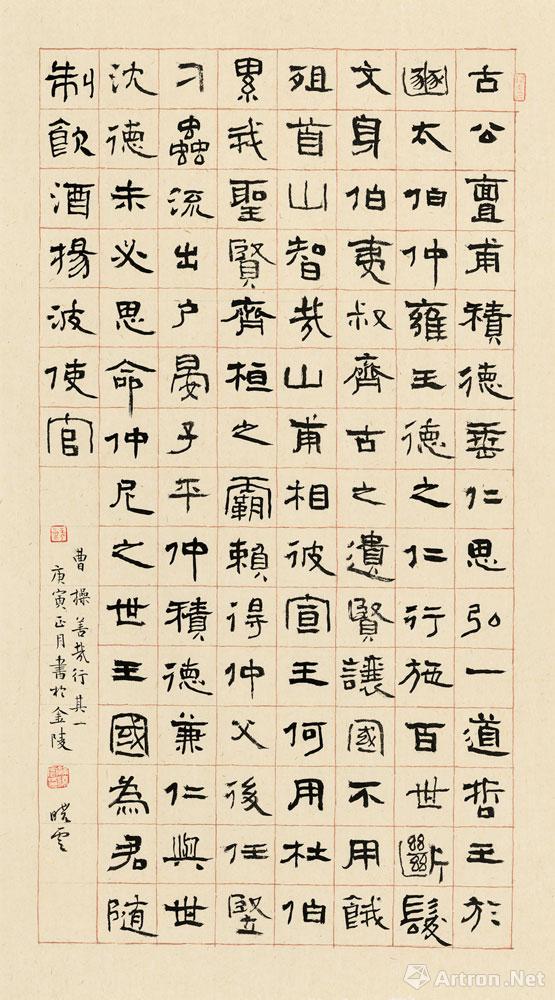 古公亶甫積德垂仁思弘一道哲王於
豳太伯仲雍王德之仁行施百世斷髮
文身伯夷叔齊古之遺賢讓國不用餓
殂首山智哉山甫相彼宣王何用杜伯
累我聖賢齊桓之霸賴得仲父後任豎
刁蟲流出户晏子平仲積德兼仁與世
沈德未必思命仲尼之世王國為君隨
制飲酒揚波使官
曹操善哉行其一
庚寅正月書於金陵 曉雲
Artron.Net